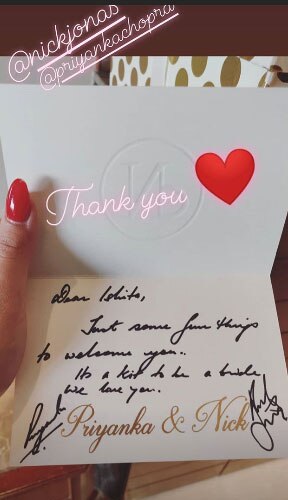 @nickjonas
@priyankachopra
Thank you
Dear Ishita,
Just some fun things
to welcome you..
Its a kit to be a bride,
we love you.
Priyanka & Nick